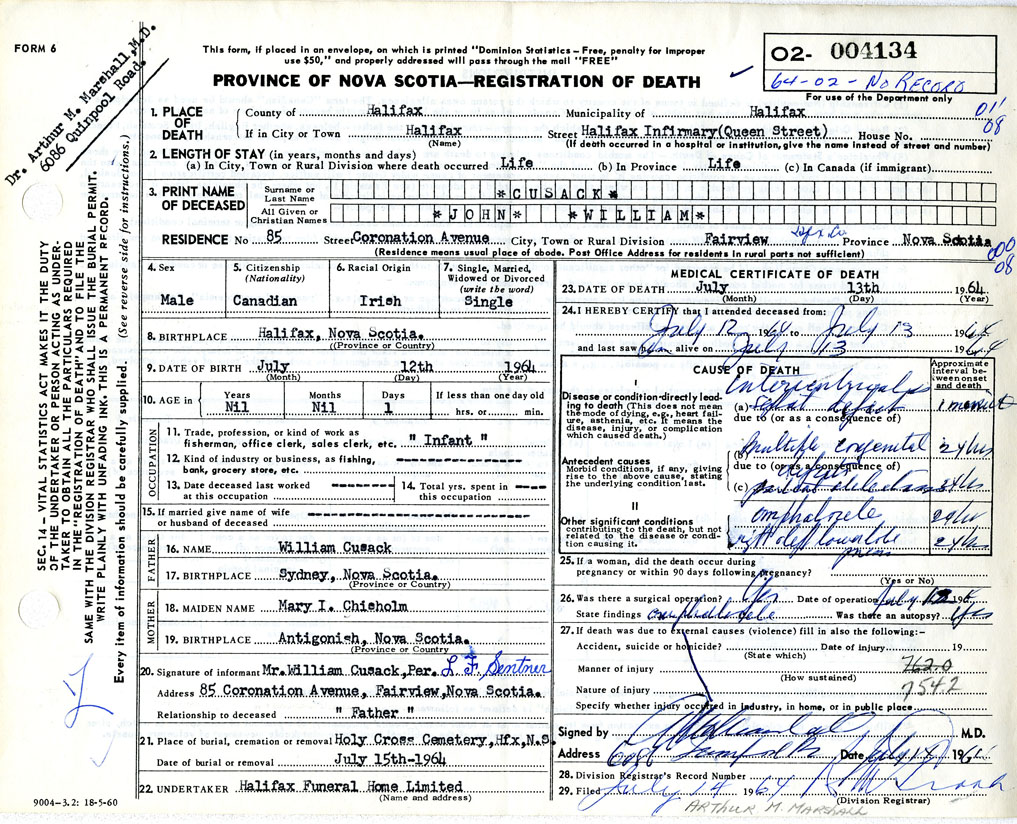 FORM 6
Dr. Arthur M. Marshall, M.D.
6086 Quinpool Road.
This form, if placed in an envelope, on which is printed "Dominion Statistics – Free, penalty for improper
use $50," and properly addressed will pass through the mail "FREE"
PROVINCE OF NOVA SCOTIA—REGISTRATION OF DEATH
02- 004134
64-02-No RECORD
For use of the Department only
SEC. 14 – VITAL STATISTICS ACT MAKES IT THE DUTY
OF THE UNDERTAKER OR PERSON ACTING AS UNDER-
TAKER TO OBTAIN ALL THE PARTICULARS REQUIRED
IN THE "REGISTRATION OF DEATH" AND TO FILE THE
SAME WITH THE DIVISION REGISTRAR WHO SHALL ISSUE THE BURIAL PERMIT.
WRITE PLAINLY WITH UNFADING INK. THIS IS A PERMANENT RECORD.
Every item of information should be carefully supplied. (See reverse side for instructions.)
1. PLACE OF DEATH
County of Halifax Municipality of Halifax
01'
08
If in City or Town Halifax Street Halifax Infirmary(Queen Street) House No.
(Name) (If death occurred in a hospital or institution, give the name instead of street and number)
2. LENGTH OF STAY (in years, months and days)
(a) In City, Town or Rural Division where death occurred Life (b) In Province Life (c) In Canada (if immigrant)
3. PRINT NAME OF DECEASED
Surname or Last Name *CUSACK*
All Given or Christian Names *JOHN* *WILLIAM*
RESIDENCE No 85 Street Coronation Avenue City, Town or Rural Division Fairview Hfx Co Province Nova Scotia
(Residence means usual place of abode. Post Office Address for residents in rural parts not sufficient)
000
08
4. Sex
Male
5. Citizenship
(Nationality)
Canadian
6. Racial Origin
Irish
7. Single, Married,
Widowed or Divorced
(write the word)
Single
8. BIRTHPLACE Halifax, Nova Scotia.
(Province or Country)
9. DATE OF BIRTH July 12th 1964
(Month) (Day) (Year)
10. AGE in Years Months Days If less than one day old
Nil Nil 1 hrs. or min.
OCCUPATION
11. Trade, profession, or kind of work as
fisherman, office clerk, sales clerk, etc. " Infant "
12. Kind of industry or business, as fishing,
bank, grocery store, etc.
13. Date deceased last worked
at this occupation
14. Total yrs. spent in
this occupation
15. If married give name of wife
or husband of deceased
FATHER
16. NAME William Cusack
17. BIRTHPLACE Sydney, Nova Scotia.
(Province or Country)
MOTHER
18. MAIDEN NAME Mary I. Chisholm
19. BIRTHPLACE Antigonish, Nova Scotia.
(Province or Country)
20. Signature of informant Mr.William Cusack,Per. L F Sentner
Address 85 Coronation Avenue, Fairview,Nova Scotia.
Relationship to deceased " Father "
21. Place of burial, cremation or removal Holy Cross Cemetery,Hfx,N.S.
Date of burial or removal July 15th-1964
22. UNDERTAKER Halifax Funeral Home Limited
(Name and address)
9004-3.2: 18-5-60
MEDICAL CERTIFICATE OF DEATH
23. DATE OF DEATH July 13th 1964
(Month) (Day) (Year)
24. I HEREBY CERTIFY that I attended deceased from:
July 12 1964 to July 13 1964
and last saw him alive on July 13 1964
CAUSE OF DEATH
Approximate
interval be-
tween onset
and death
I
Disease or condition directly lead-
ing to death (This does not mean
the mode of dying, e.g., heart fail-
ure, asthenia, etc. It means the
disease, injury, or complication
which caused death.)
(a) septal defect
due to (or as a consequence of)
Antecedent causes
Morbid conditions, if any, giving
rise to the above cause, stating
the underlying condition last.
(b) multiple congenital 24hrs
due to (or as a consequence of)
(c) 24hrs
II
Other significant conditions
contributing to the death, but not
related to the disease or condi-
tion causing it.
omphalocele 24hr
24hrs
25. If a woman, did the death occur during
pregnancy or within 90 days following pregnancy?
(Yes or No)
26. Was there a surgical operation? Yes Date of operation July 12 196
State findings omphalocele Was there an autopsy? Yes
27. If death was due to external causes (violence) fill in also the following:–
Accident, suicide or homicide? Date of injury 19
(State which)
Manner of injury 762.0
(How sustained)
Nature of injury 7542
Specify whether injury occurred in industry, in home, or in public place
Signed by M.D.
Address Date July 14 196
28. Division Registrar's Record Number
29. Filed July 14 1964
(Division Registrar)
ARTHUR M. MARSHALL